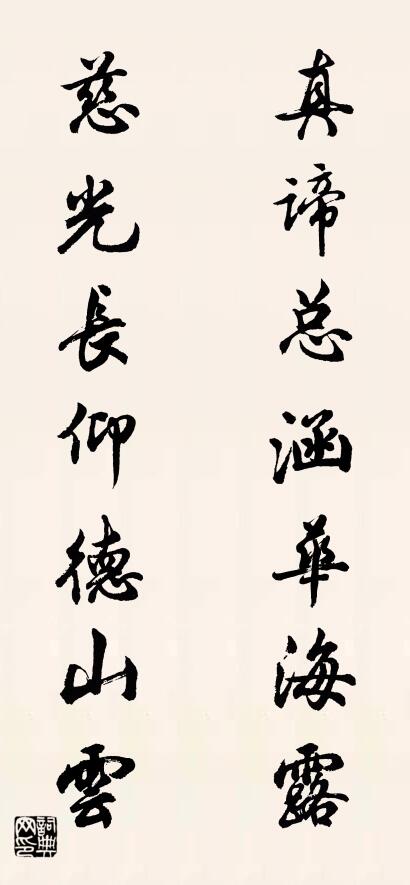 真諦总涵華海露
慈光長仰德山雲
詞典网印